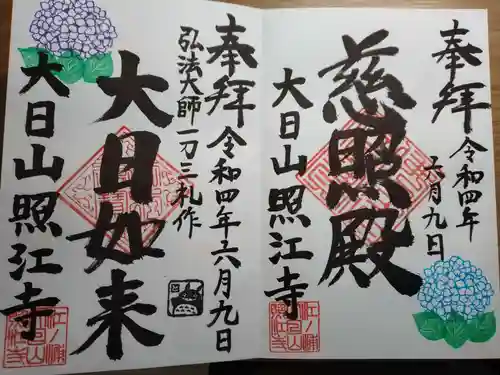 奉拝
令和四年
六月九日
慈照殿
大日山照江寺
奉拝
令和四年六月九日
弘法大師一万三札作
大日如来
大日山照江寺